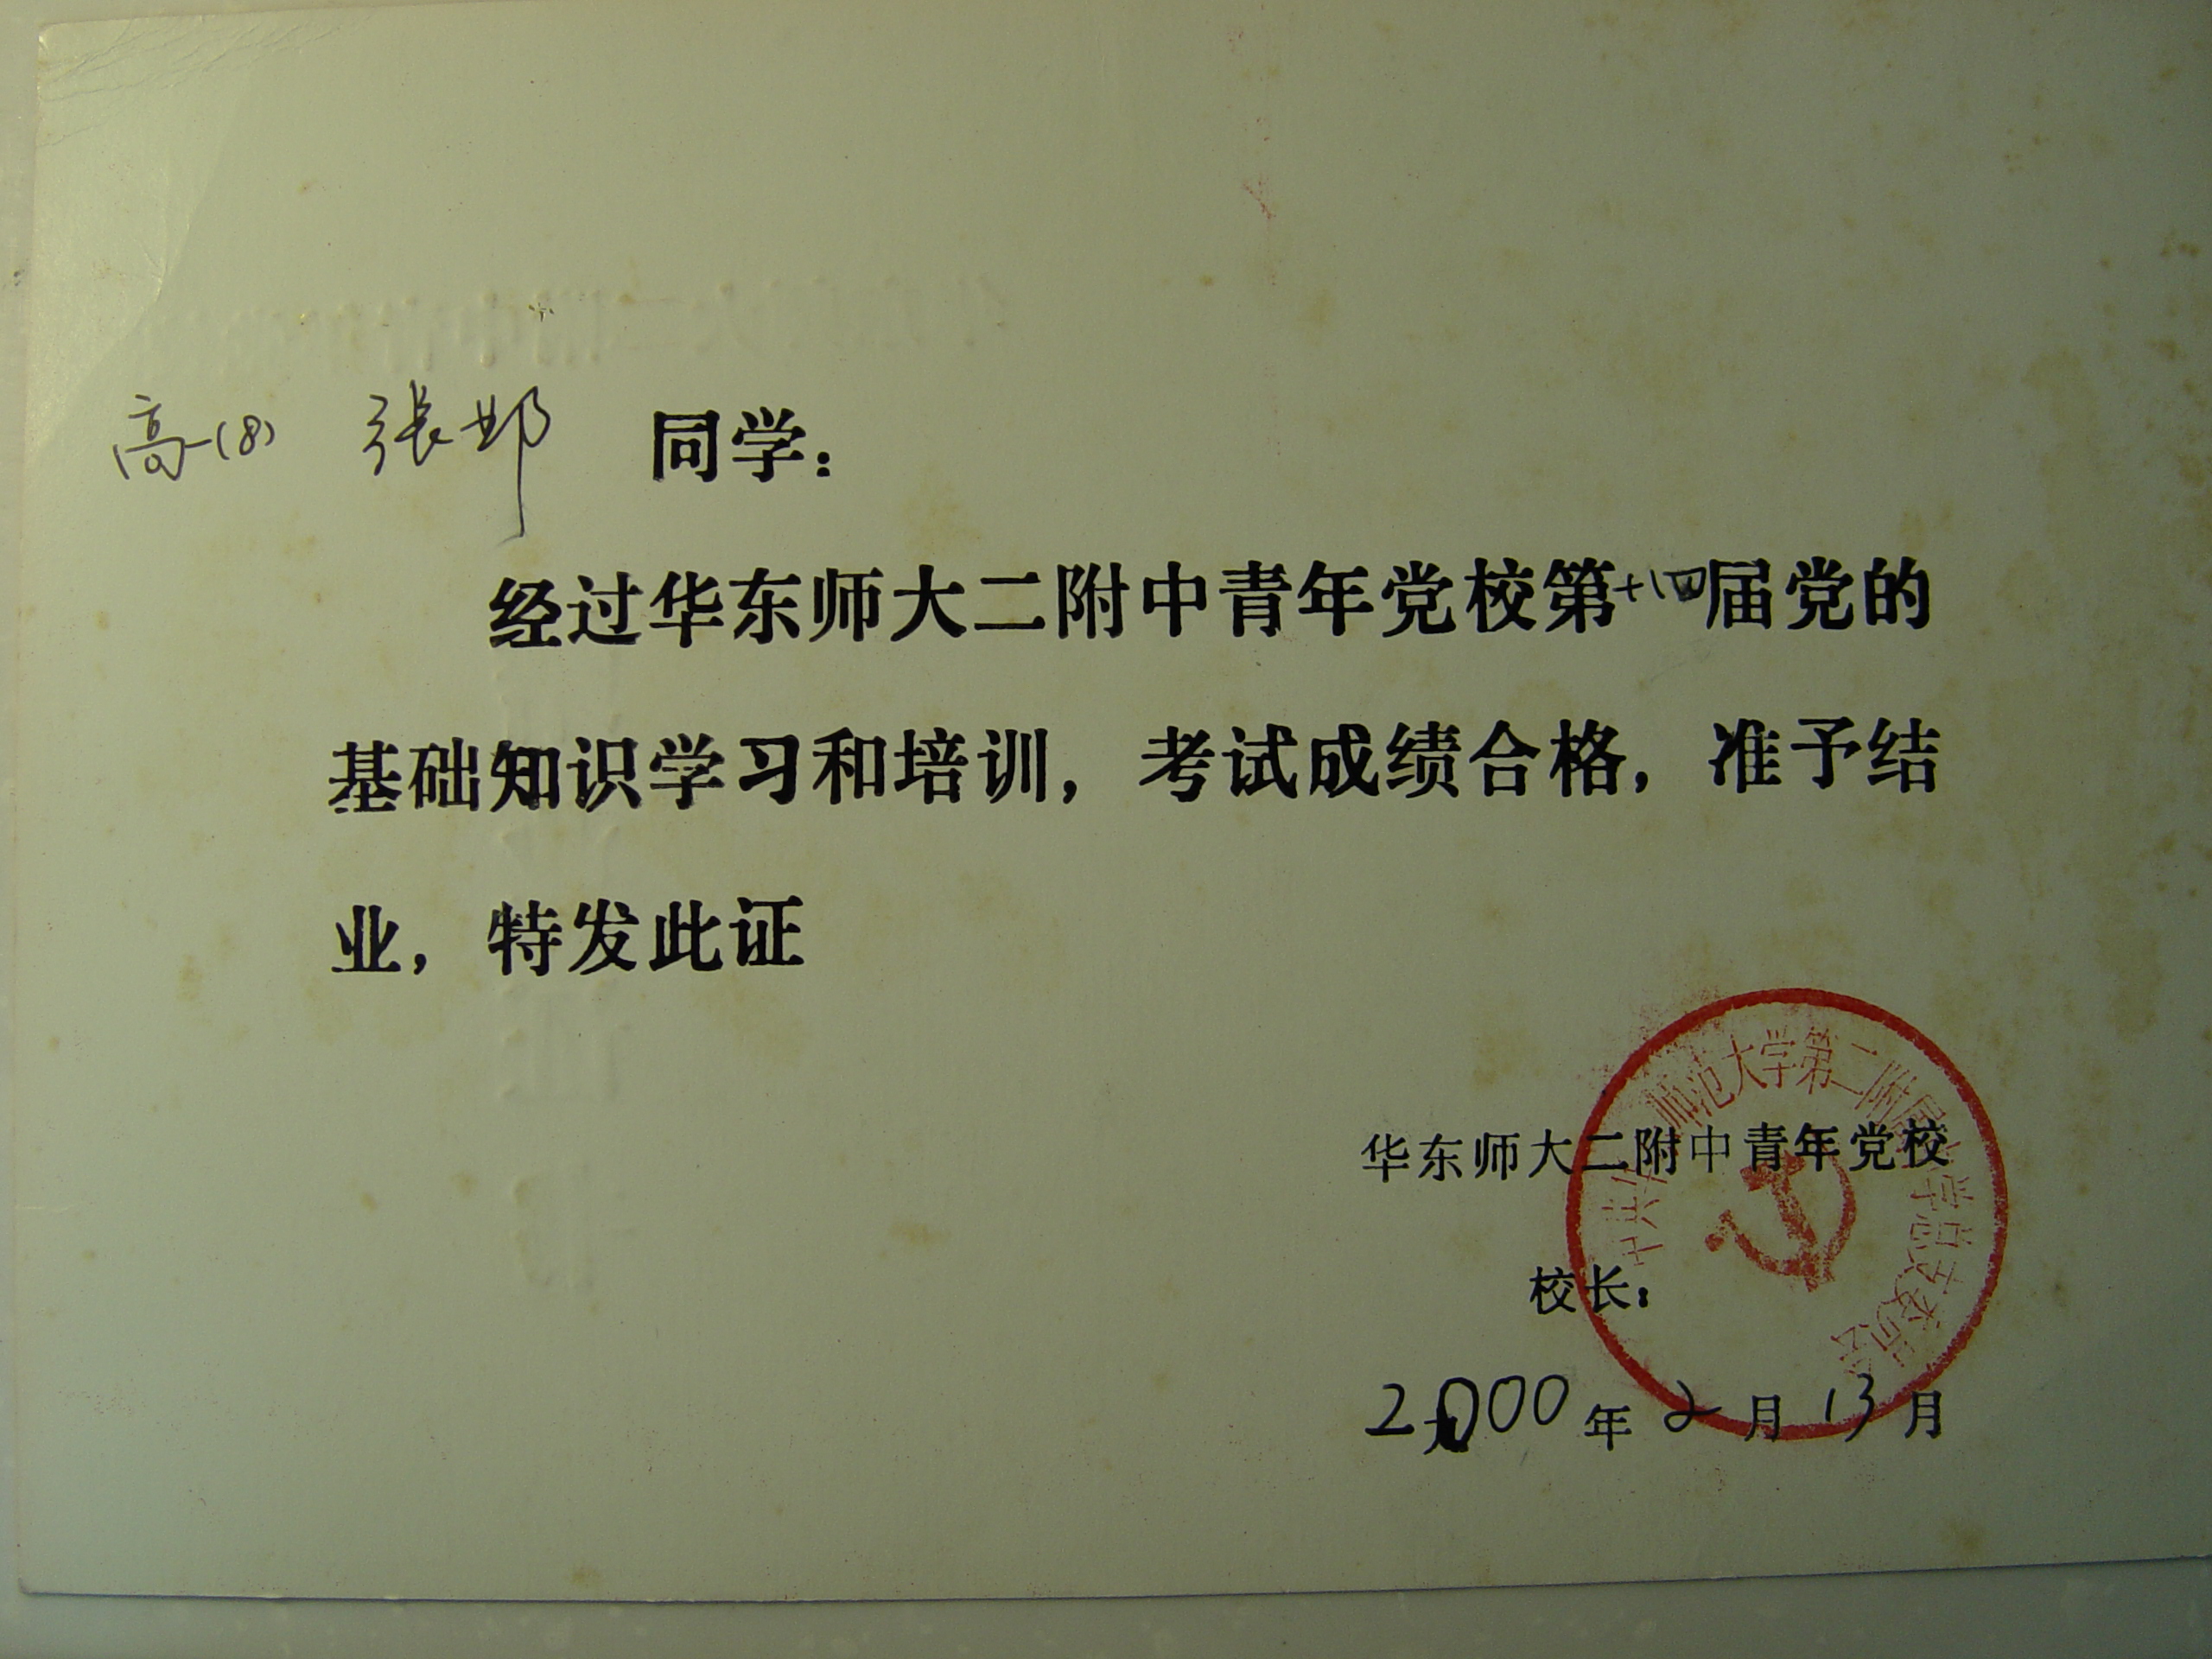 高一(8) 张邯 同学：
经过华东师大二附中青年党校第十四届党的
基础知识学习和培训，考试成绩合格，准予结
业，特发此证
华东师大二附中青年党校
校长：
2000年2月13月
中共华东师范大学第二附属中学总支委员会